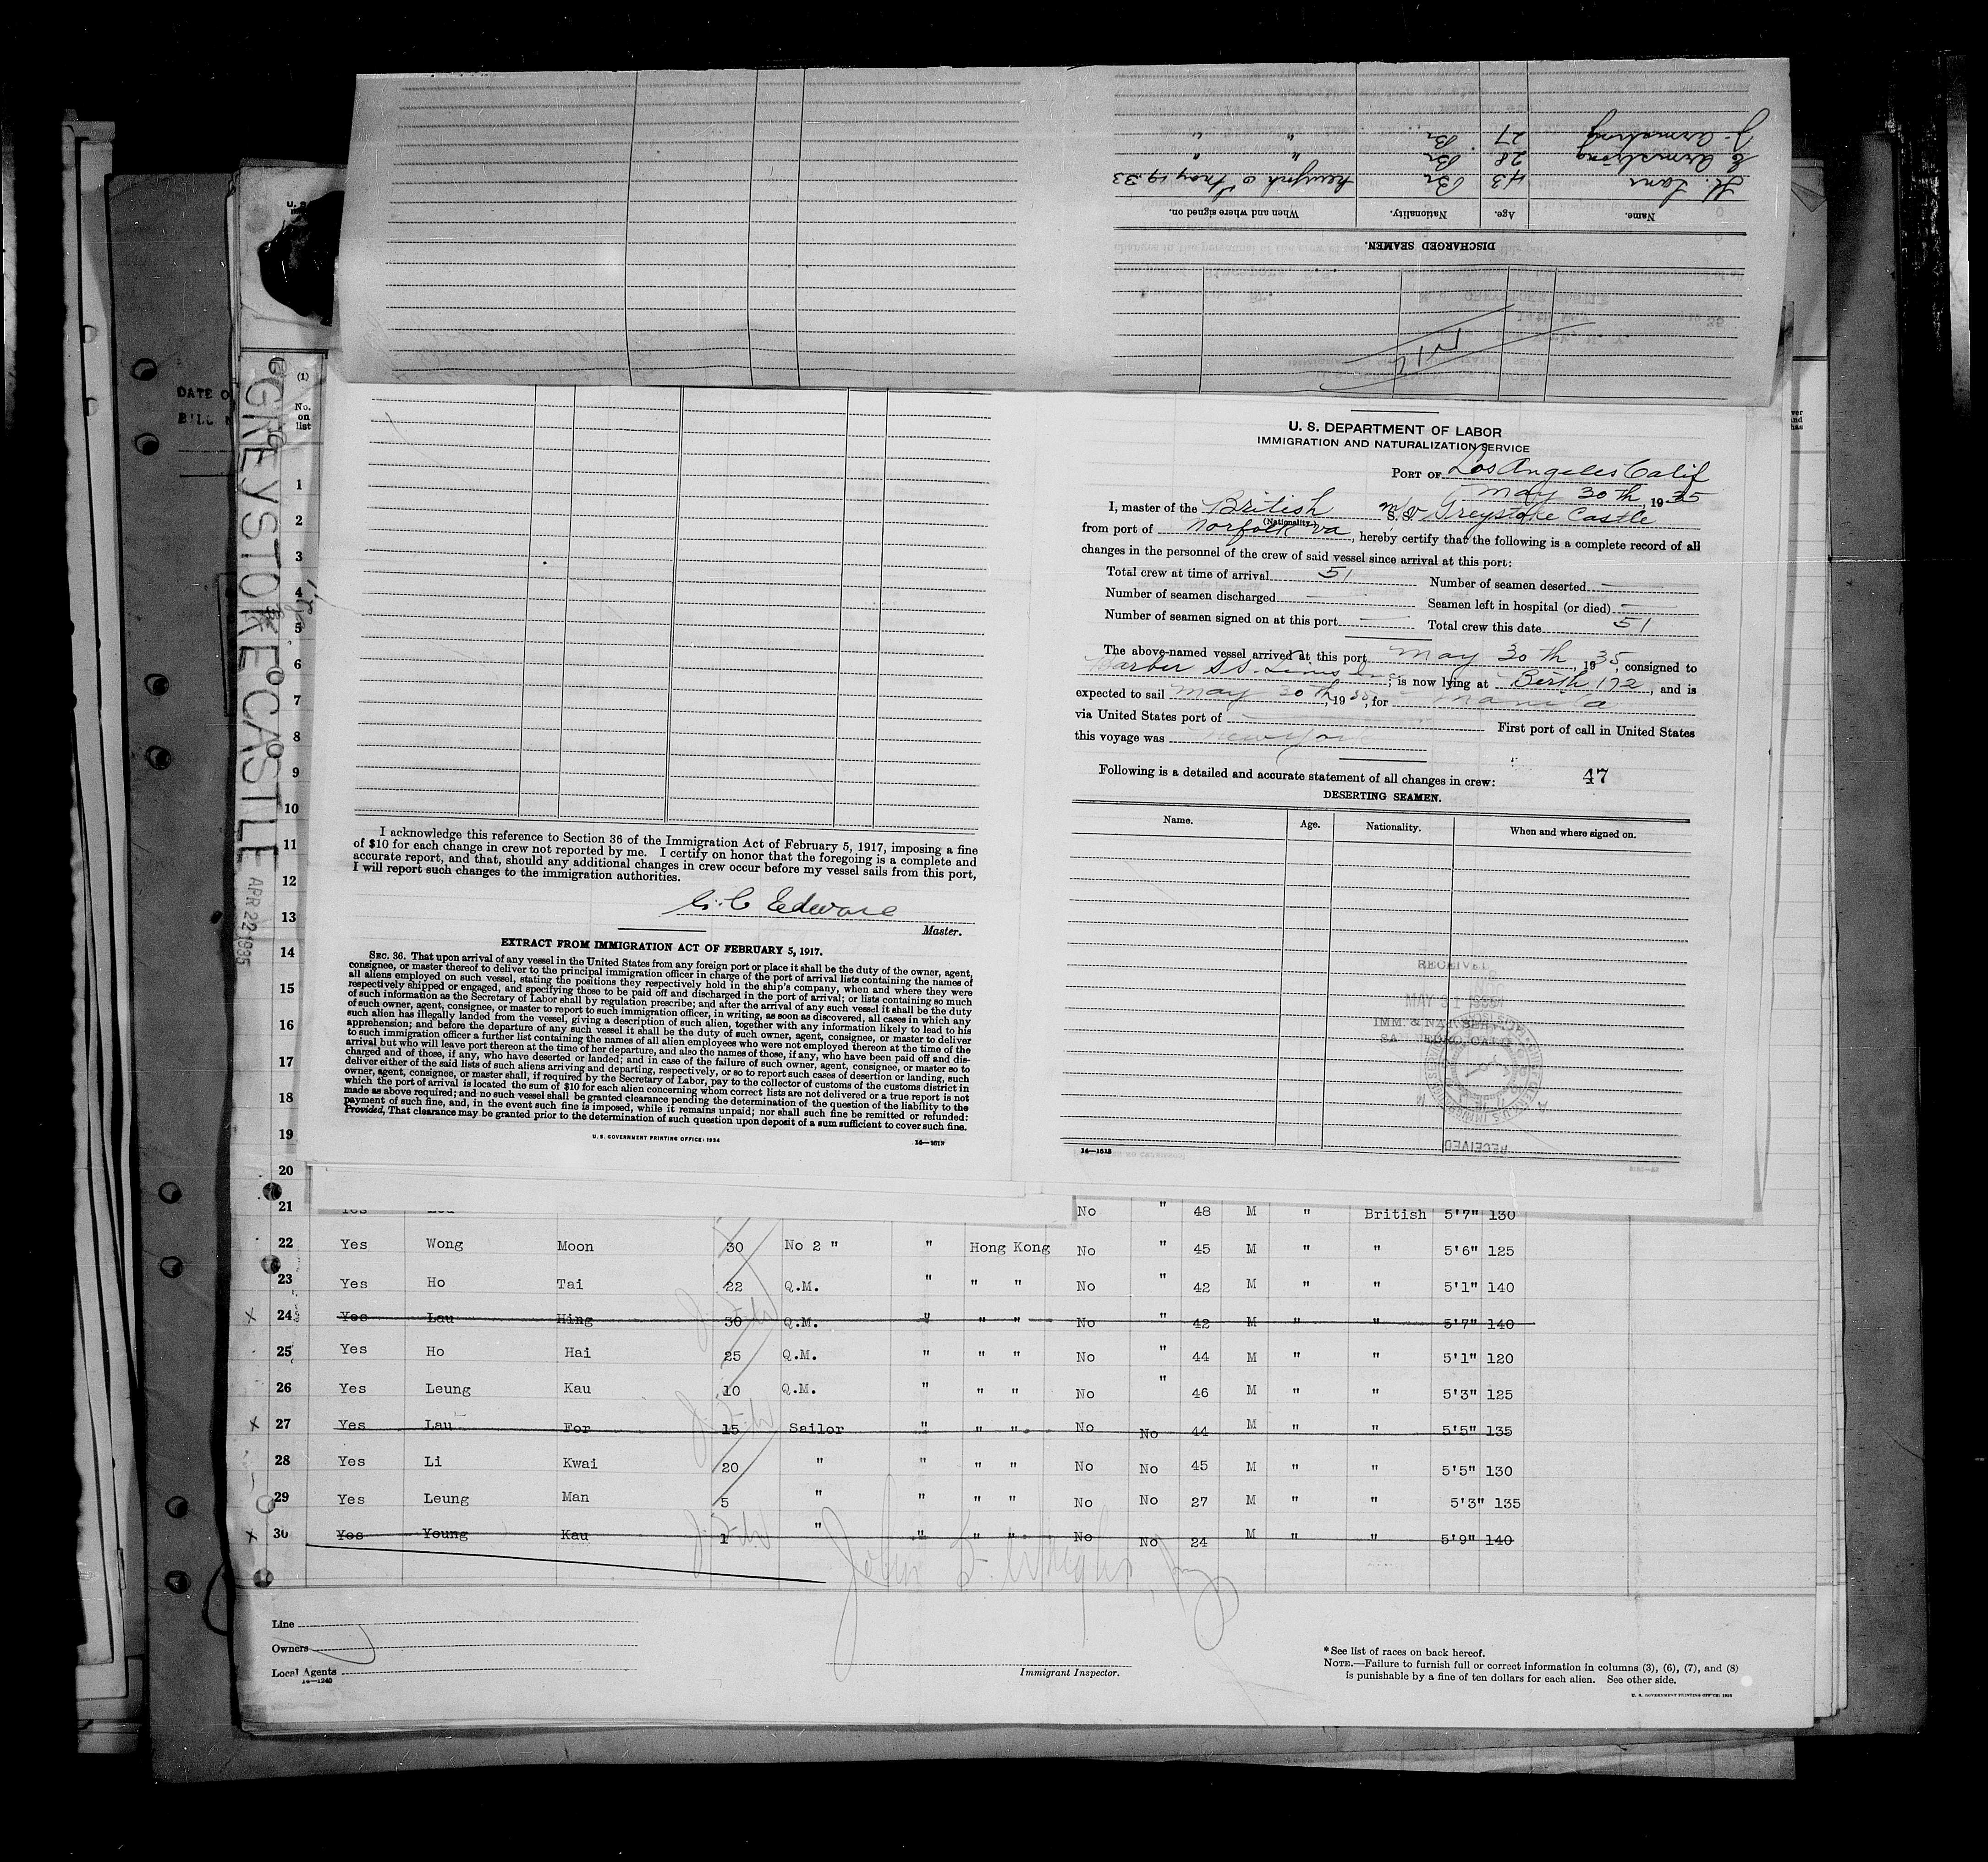 J. Armstrong 27 Br " "
E Armstrong 28 Br " "
43 Br New York
Name. Age. Nationality. When and where signed on.
DISCHARGED SEAMEN.
DATE O
GREYSTOKE CASTLE
APR 22 1935
(1)
No.
on
list
U. S. DEPARTMENT OF LABOR
IMMIGRATION AND NATURALIZATION SERVICE
PORT OF Los Angeles Calif
May 30th, 1935
I, master of the British m/v S. S. Greystoke Castle
(Nationality)
from port of Norfolk Va, hereby certify that the following is a complete record of all
changes in the personnel of the crew of said vessel since arrival at this port:
Total crew at time of arrival 51 Number of seamen deserted —
Number of seamen discharged — Seamen left in hospital (or died) —
Number of seamen signed on at this port — Total crew this date 51
The above-named vessel arrived at this port May 30th, 1935, consigned to
Barber SS. Lines Inc; is now lying at Berth 172, and is
expected to sail May 30th, 1935, for Manila
via United States port of — First port of call in United States
this voyage was New York
Following is a detailed and accurate statement of all changes in crew: 47
DESERTING SEAMEN.
Name. Age. Nationality. When and where signed on.
RECEIVED
MAY 31
IMM. & NAT. SERVICE
SAN PEDRO, CALIF
RECEIVED
14—1613
I acknowledge this reference to Section 36 of the Immigration Act of February 5, 1917, imposing a fine
of $10 for each change in crew not reported by me. I certify on honor that the foregoing is a complete and
accurate report, and that, should any additional changes in crew occur before my vessel sails from this port,
I will report such changes to the immigration authorities.
Master.
EXTRACT FROM IMMIGRATION ACT OF FEBRUARY 5, 1917.
SEC. 36. That upon arrival of any vessel in the United States from any foreign port or place it shall be the duty of the owner, agent,
consignee, or master thereof to deliver to the principal immigration officer in charge of the port of arrival lists containing the names of
all aliens employed on such vessel, stating the positions they respectively hold in the ship's company, when and where they were
respectively shipped or engaged, and specifying those to be paid off and discharged in the port of arrival; or lists containing so much
of such information as the Secretary of Labor shall by regulation prescribe; and after the arrival of any such vessel it shall be the duty
of such owner, agent, consignee, or master to report to such immigration officer, in writing, as soon as discovered, all cases in which any
such alien has illegally landed from the vessel, giving a description of such alien, together with any information likely to lead to his
apprehension; and before the departure of any such vessel it shall be the duty of such owner, agent, consignee, or master to deliver
to such immigration officer a further list containing the names of all alien employees who were not employed thereon at the time of the
arrival but who will leave port thereon at the time of her departure, and also the names of those, if any, who have been paid off and dis-
charged and of those, if any, who have deserted or landed; and in case of the failure of such owner, agent, consignee, or master so to
deliver either of the said lists of such aliens arriving and departing, respectively, or so to report such cases of desertion or landing, such
owner, agent, consignee, or master shall, if required by the Secretary of Labor, pay to the collector of customs of the customs district in
which the port of arrival is located the sum of $10 for each alien concerning whom correct lists are not delivered or a true report is not
made as above required; and no such vessel shall be granted clearance pending the determination of the question of the liability to the
payment of such fine, and, in the event such fine is imposed, while it remains unpaid; nor shall such fine be remitted or refunded:
Provided, That clearance may be granted prior to the determination of such question upon deposit of a sum sufficient to cover such fine.
U. S. GOVERNMENT PRINTING OFFICE: 1934 14—1613
1
2
3
4
5
6
7
8
9
10
11
12
13
14
15
16
17
18
19
20
21 Yes No " 48 M " British 5'7" 130
22 Yes Wong Moon 30 No 2 " " Hong Kong No " 45 M " " 5'6" 125
23 Yes Ho Tai 22 Q.M. " " " No " 42 M " " 5'1" 140
x 24 Yes Lau Hing 30 Q.M. " " " No " 42 M " " 5'7" 140
25 Yes Ho Hai 25 Q.M. " " " No " 44 M " " 5'1" 120
26 Yes Leung Kau 10 Q.M. " " " No " 46 M " " 5'3" 125
x 27 Yes Lau For 15 Sailor " " " No No 44 M " " 5'5" 135
28 Yes Li Kwai 20 " " " " No No 45 M " " 5'5" 130
29 Yes Leung Man 5 " " " " No No 27 M " " 5'3" 135
x 30 Yes Young Kau 1 " " " " No No 24 M " " 5'9" 140
Line
Owners
Local Agents
14—1240
Immigrant Inspector.
* See list of races on back hereof.
NOTE.—Failure to furnish full or correct information in columns (3), (6), (7), and (8)
is punishable by a fine of ten dollars for each alien. See other side.